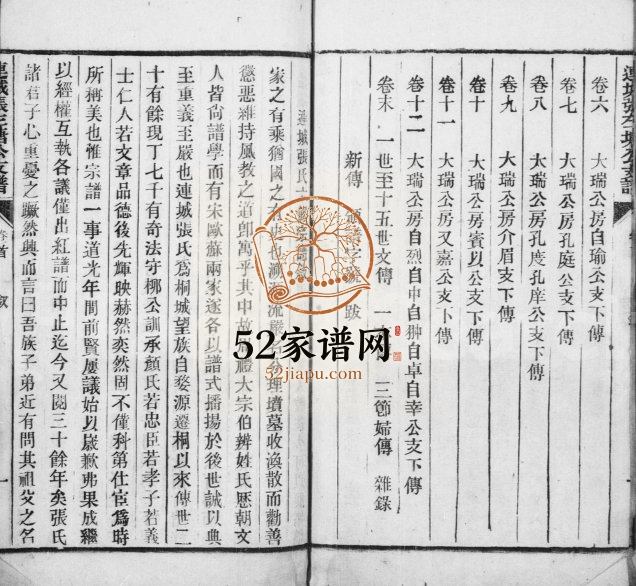 卷六 大瑞公房自瑜公支下傳
卷七 大瑞公房孔庭公支下傳
卷八 大瑞公房孔度孔庠公支下傳
卷九 大瑞公房介眉公支下傳
卷十 大瑞公房賓以公支下傳
卷十一 大瑞公房又嘉公支下傳
卷十二 大瑞公房自烈自中自翀自卓自幸公支下傳
卷末 一世至十五世文傳 三節婦傳 雜錄
新傳 跋
連城張氏
家之有乘猶國之有史也 流嚴 理墳墓收渙散而勸善
懲惡維持風教之道即寓乎其中故 禮大宗伯辨姓氏歷朝文
人皆尙譜學而有宋歐蘇兩家遂各以譜式播揚於後世誠以典
至重義至嚴也連城張氏爲桐城望族自婺源遷桐以來傳世二
十有餘現丁七千有奇法守挪公訓承顏氏若忠臣若孝子若義
士仁人若文章品德後先輝映赫然奕然固不僅科第仕宦爲時
所稱美也惟宗譜一事道光年間前賢屢議始以歲歉弗果成繼
以經權互執各議僅出紅譜而中止迄今又閱三十餘年矣張氏
諸君子心重憂之蹶然興而言曰吾族子弟近有問其祖父之名
卷首 敘
52家谱网
52jiapu.com